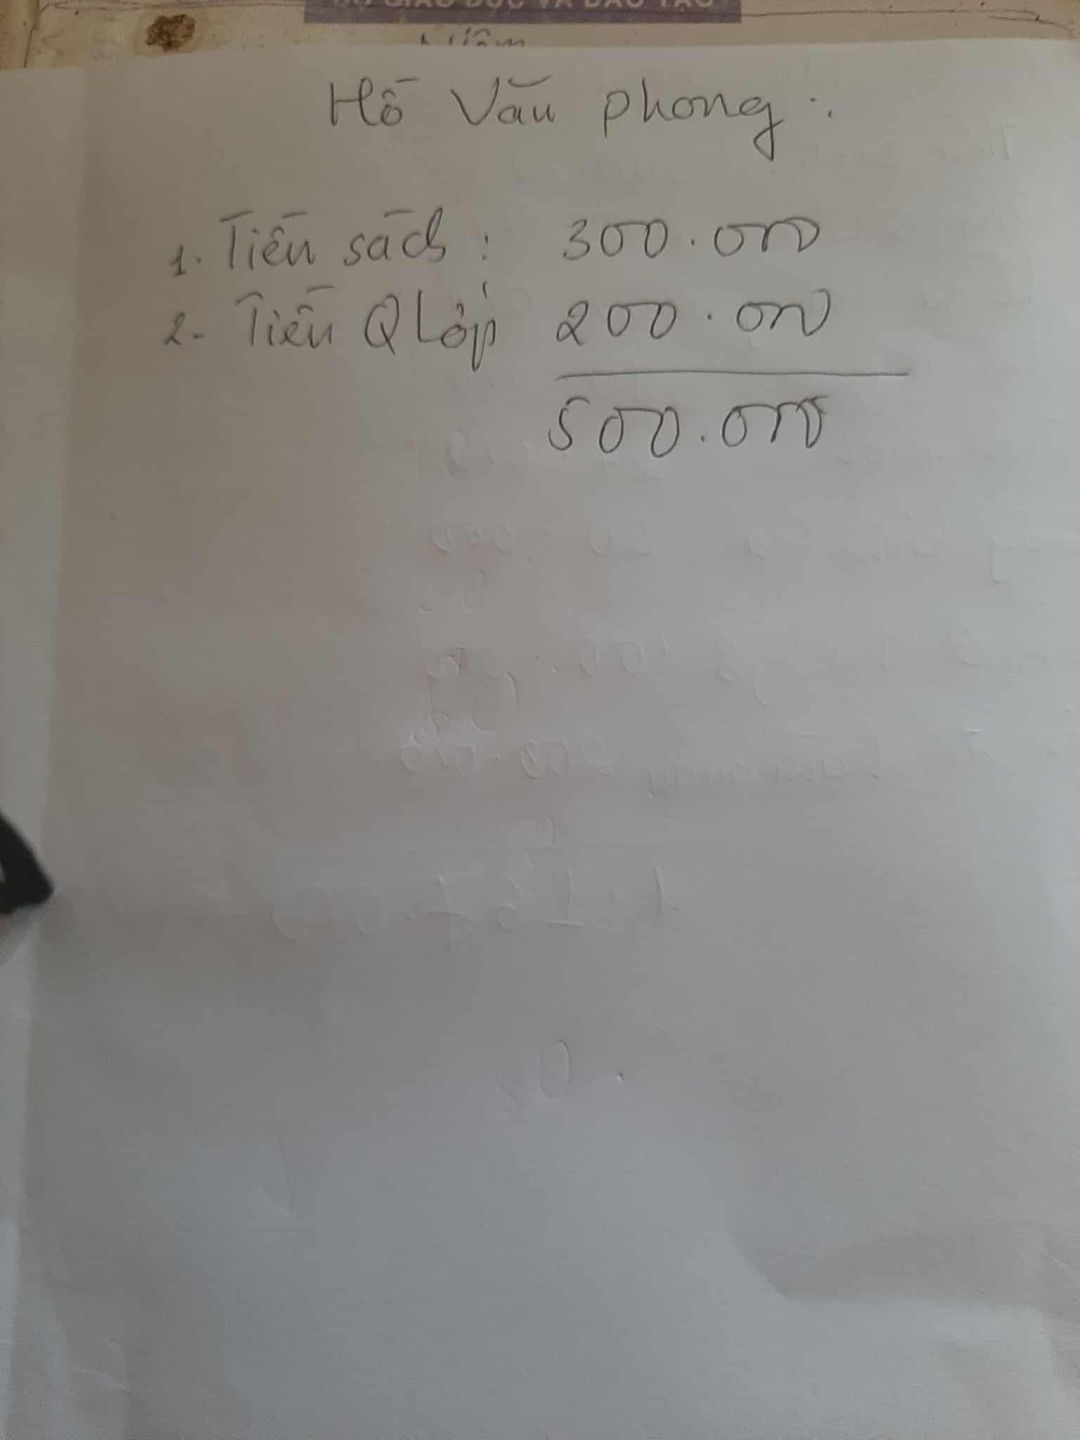 BỘ GIÁO DỤC VÀ ĐÀO TẠO
Hồ Văn Phong:
1. Tiền sách: 300.000
2- Tiền Q Lớp 200.000
500.000